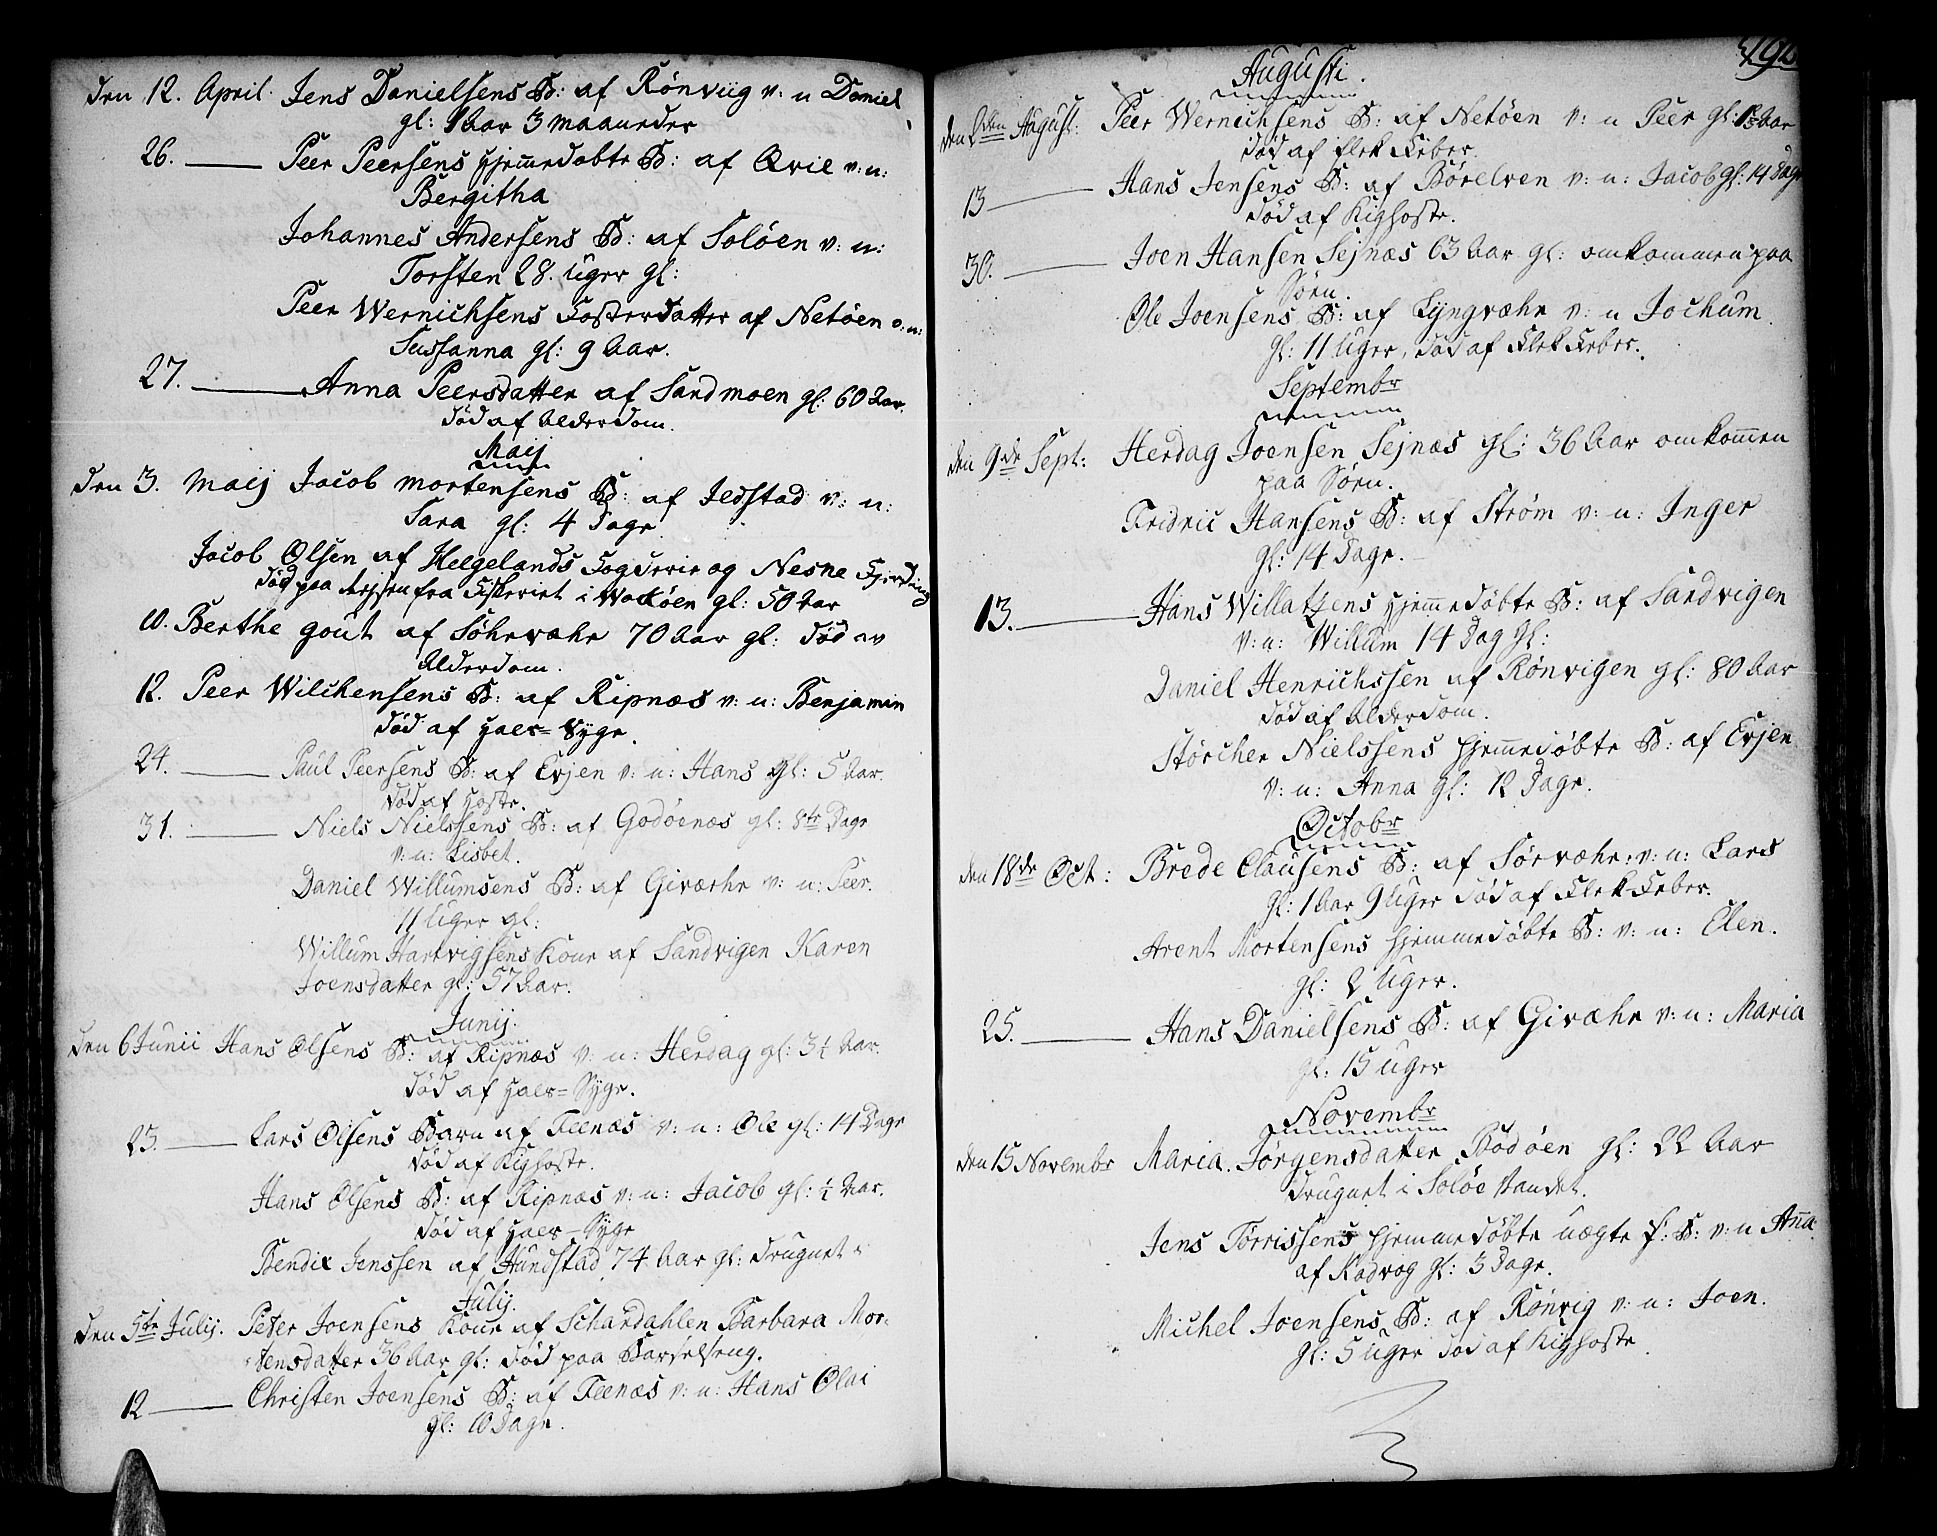 den 12. April. Jens Danielsens B: af Rønviig v: n Daniel
gl: 1 Aar 3 maaneder
26. Peer Peersens hjemmedøbte B: af Qvie v: n:
Bergitha
Johannes Andersens B: af Soløen v: n:
Torsten 28. Uger gl:
Peer Wernichsens Fosterdatter af Netøen v: n:
Sussanna gl: 9 Aar.
27. Anna Peersdatter af Sandmoen gl: 60 Aar.
død af Alderdom.
Maij
den 3. Maij Jacob Mortensens B: af Jedstad v: n:
Sara gl: 4 Dage
Jacob Olsen af Helgelands Fogderie og Nesne Fjerding
død paa Rejsen fra Fiskeriet i Waagøen gl: 50 Aar
10. Berthe Gout af Søhrværhe 70 Aar gl: død av
Alderdom.
12. Peer Wilchensens B: af Ripnæs v: n: Benjamin
død af Hals=Syge.
24. Paul Peersens B: af Evjen v: n: Hans gl: 5 Aar.
død af Hoste.
31. Niels Nielssens B: af Godøenæs gl: 8te Dage
v: n: Lisbet.
Daniel Willumsens B: af Giværhe v: n: Peer.
11 Uger gl:
Willum Hartvigsens Kone af Sandvigen Karen
Joensdatter gl: 57 Aar.
Junij.
den 6 Junii Hans Olsens B: af Ripnæs v: n: Herdag gl: 3½ Aar.
død af Hals=Syge.
25. Lars Olsens Barn af Feenæs v: n: Ole gl: 14 Dage
død af Kighoste.
Hans Olsens B: af Ripnæs v: n: Jacob gl: ½ Aar.
død af Hals=Syge
Bendix Jenssen af Hundstad 74 Aar gl: drugnet
Julij.
den 5te Julij. Peter Joensens Kone af Schardahlen Barbara Mor-
tensdatter 36 Aar gl: død paa Barselseng.
12 Christen Joensens B: af Feenæs v: n: Hans Olai
gl: 10 Dage.
Augusti.
den 2den August: Peer Wernichsens B: af Netøen v: n Peer gl: Aar
død af Flek Feber.
13 Hans Jensens B: af Børelven v: n: Jacob gl: 14 Dage
død af Kighoste.
30. Joen Hansen Sejnæs 63 Aar gl: omkommen paa
Søen.
Ole Joensens B: af Lyngværhe v: n Jochum.
gl: 11 Uger, død af Flek Feber.
Septembr
den 9de Sept: Herdag Joensen Sejnæs gl: 36 Aar omkommen
paa Søen.
Fridric Hansens B: af Strøm v: n: Inger
gl: 14 Dage.
13. Hans Willatzens hjemmedøbte B: af Sandvigen
v: n: Willum 14 Dag gl:
Daniel Henrichssen af Rønvigen gl: 80 Aar
død af Alderdom.
Størcher Nielssens hjemmedøbte B: af Evjen
v: n: Anna gl: 12 Dage.
Octobr
den 18de Oct: Brede Clausens B: af Sørværhe v: n: Lars
gl: 1 Aar 9 Uger død af Flek Feber.
Arent Mortensens hjemmedøbte B: v: n: Elen.
gl: 2 Uger.
25. Hans Danielsens B: af Giværhe v: n: Maria
gl: 15 Uger
Novembr
den 15 Novembr Maria Jørgensdatter Bodøen gl: 22 Aar
drugnet i Soløe Vandet.
Jens Tørrissens hjemmedøbte uægte B: v: n Anna
af Kodvog gl: 3 Dage.
Michel Joensens B: af Rønvig v: n: Joen.
gl: 5 Uger død af Kighoste